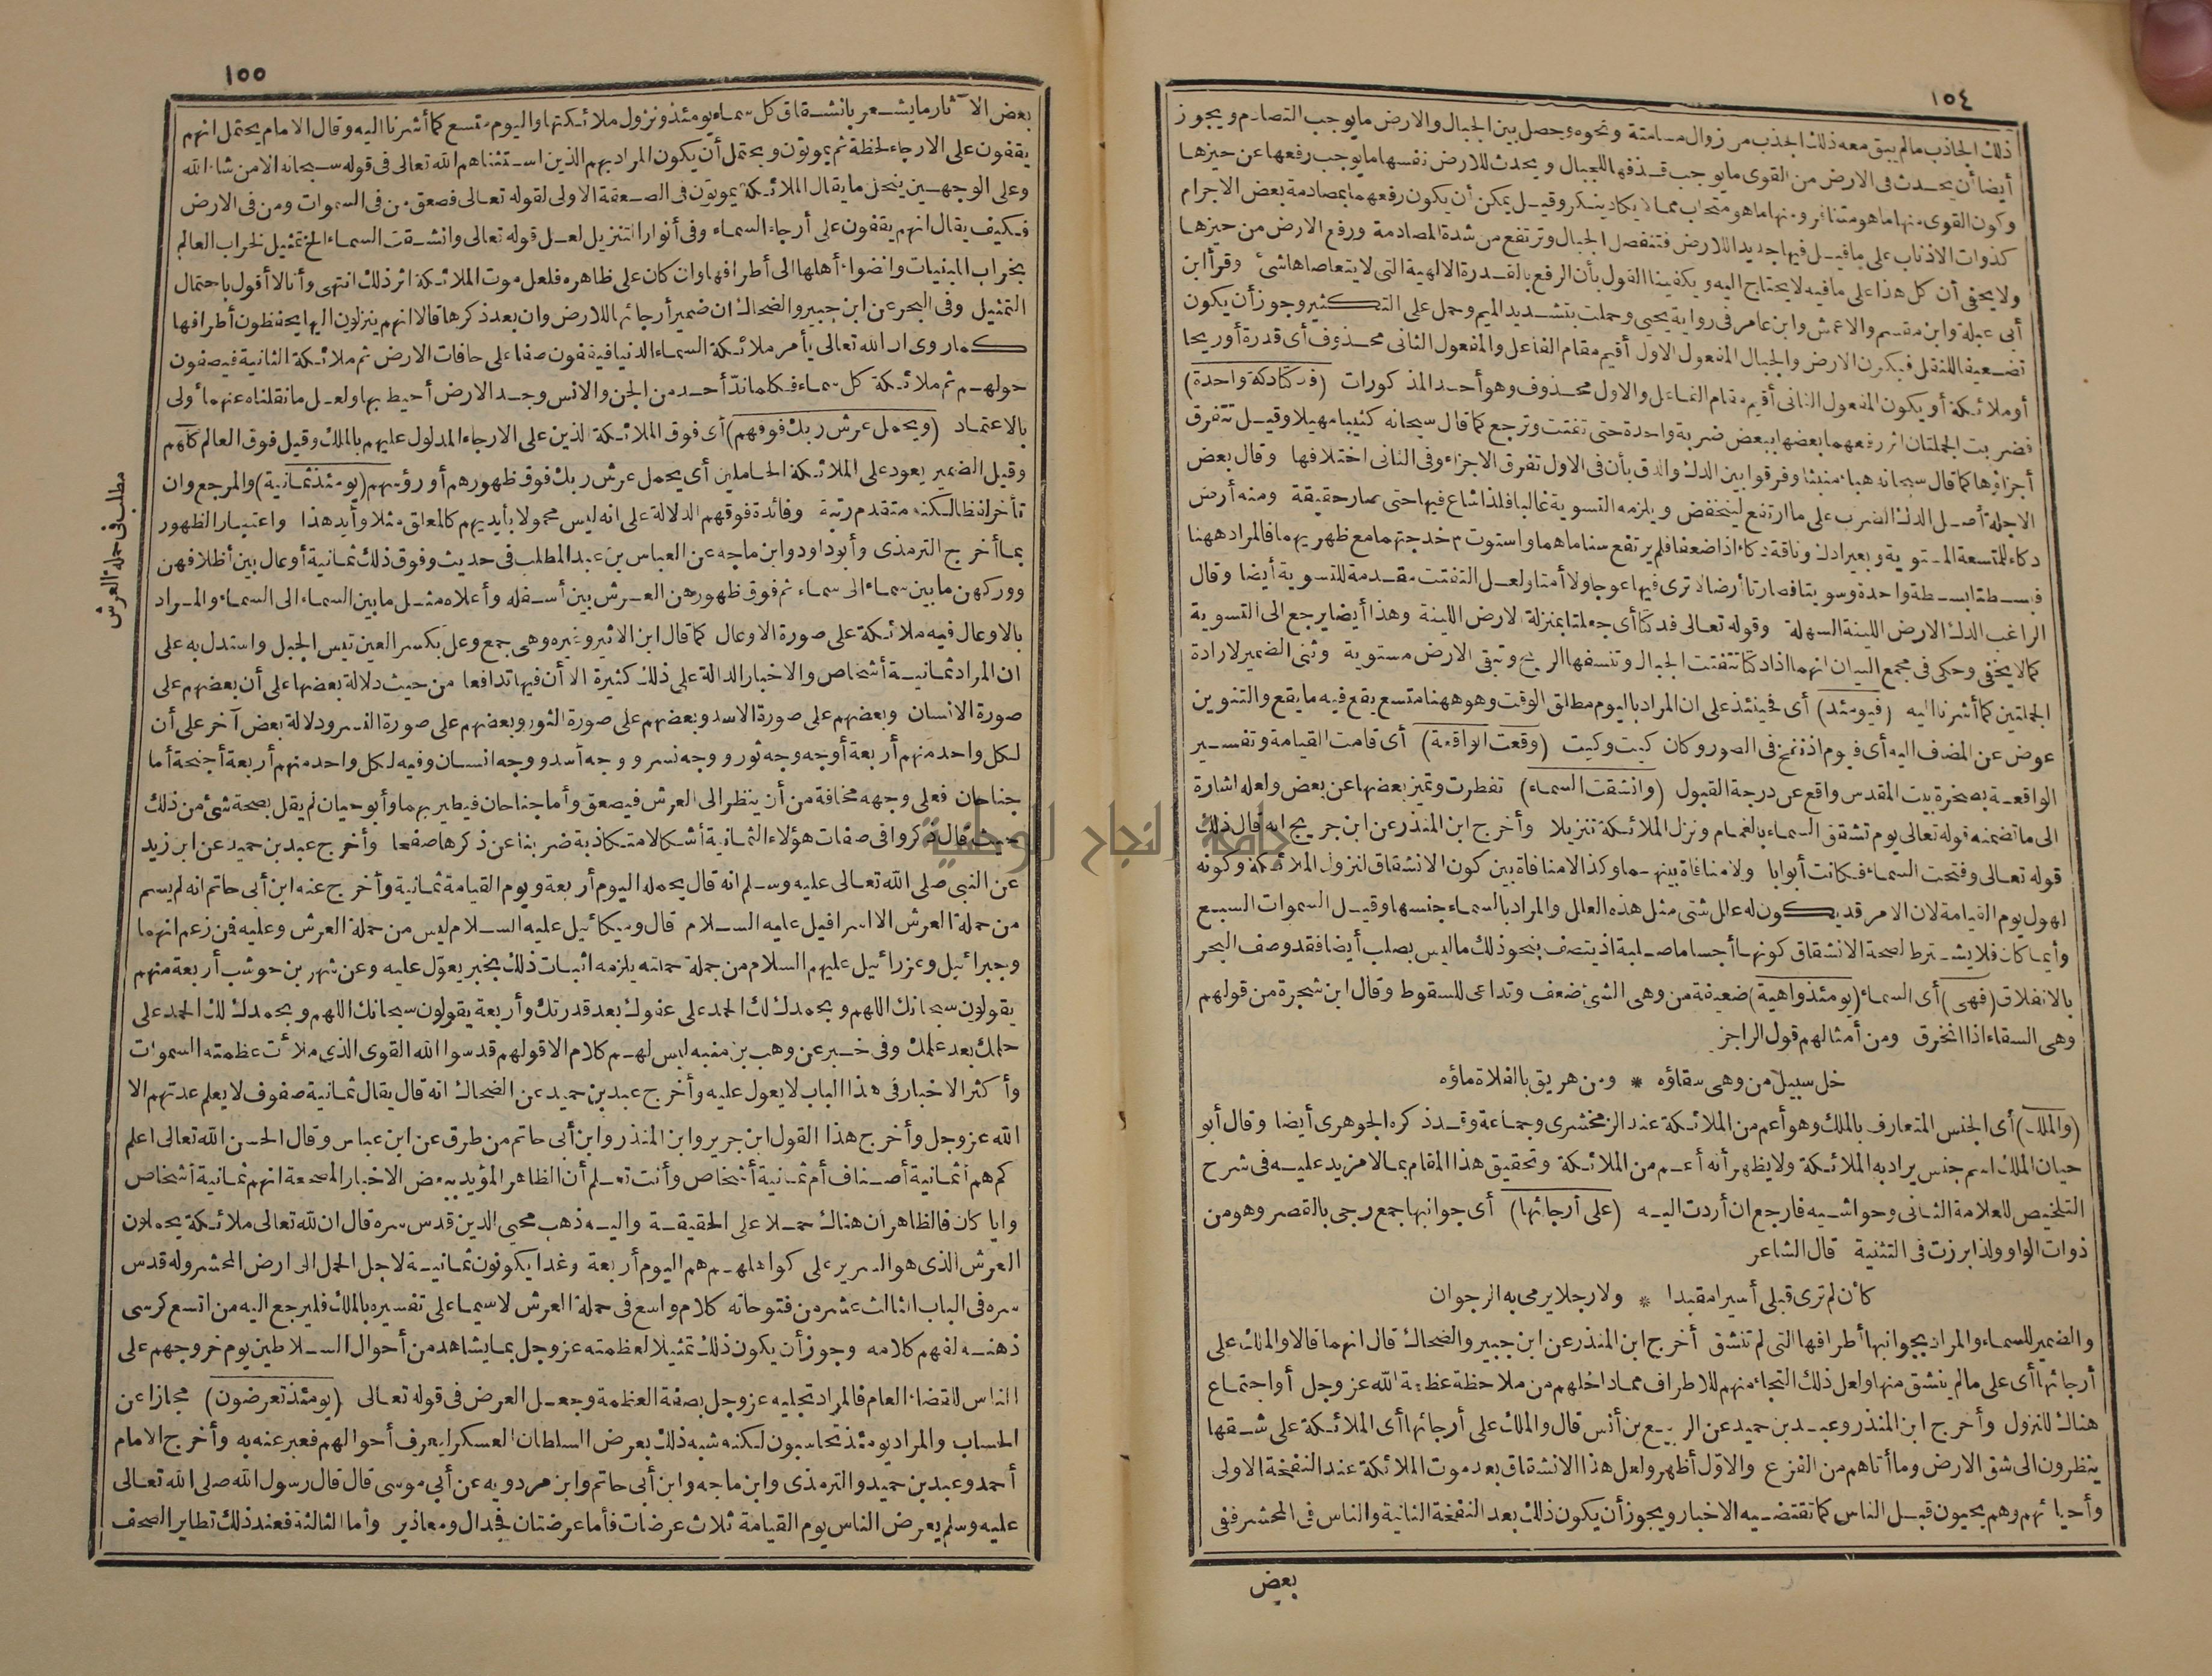 ١٥٤
ذلك الجاذب مالم يبق معه ذلك الجذب من زوال مسامتة ونحوه وحصل بين الجبال والارض ما يوجب التصادم ويجوز
أيضا أن يحدث فى الارض من القوى ما يوجب قذفها للجبال ويحدث للارض نفسها ما يوجب رفعها عن حيزها
وكون القوى منها ما هو متنافر ومنها ما هو متحاب مما لا يكاد ينكر وقيل يمكن أن يكون رفعهما بمصادمة بعض الاجرام
كذوات الاذناب على ما قيل فيها جديدا للارض فتنفصل الجبال وترتفع من شدة المصادمة ورفع الارض من حيزها
ولا يخفى أن كل هذا على ما فيه لا يحتاج اليه ويكفينا القول بأن الرفع بالقدرة الالهية التى لا يتعاصاها شئ وقرأ ابن
أبى عبلة وابن مقسم والاعمش وابن عامر فى رواية يحيى وحملت بتشديد الميم وحمل على التكثير وجوز أن يكون
تضعيفا للنقل فيكون الارض والجبال المفعول الاول أقيم مقام الفاعل والمفعول الثانى محذوف أى قدرة أو ريحا
أو ملائكة أو يكون المفعول الثانى أقيم مقام الفاعل والاول محذوف وهو أحد المذكورات (فدكتا دكة واحدة)
فضربت الجملتان اثر رفعهما بعضها ببعض ضربة واحدة حتى تفتت وترجع كما قال سبحانه كثيبا مهيلا وقيل تتفرق
أجزاؤها كما قال سبحانه هباء منبثا وفرقوا بين الدك والدق بأن فى الاول تفرق الاجزاء وفى الثانى اختلافها وقال بعض
الاجلة أصل الدك الضرب على ما ارتفع لينخفض ويلزمه التسوية غالبا فلذا شاع فيها حتى صار حقيقة ومنه أرض
دكاء للمتسعة المستوية وبعير أدك وناقة دكاء اذا ضعفا فلم يرتفع سناماهما واستوت خدجتهما مع ظهريهما فالمراد ههنا
فبسطتا بسطة واحدة وسويتا فصارتا أرضا لا ترى فيها عوجا ولا أمتا ولعل التفتت مقدمة للتسوية أيضا وقال
الراغب الدك الارض اللينة السهلة وقوله تعالى فدكتا أى جعلتا بمنزلة لارض اللينة وهذا أيضا يرجع الى التسوية
كما لا يخفى وحكى فى مجمع البيان انهما اذا دكتا تتفتت الجبال وتنسفها الريح وتبقى الارض مستوية وثنى الضمير لارادة
الجملتين كما أشرنا اليه (فيومئذ) أى فحينئذ على ان المراد باليوم مطلق الوقت وهو ههنا متسع يقع فيه ما يقع والتنوين
عوض عن المضاف اليه أى فيوم اذ نفخ فى الصور وكان كيت وكيت (وقعت الواقعة) أى قامت القيامة وتفسير
الواقعة بصخرة بيت المقدس واقع عن درجة القبول (وانشقت السماء) تفطرت وتميز بعضها عن بعض ولعله اشارة
الى ما تضمنه قوله تعالى يوم تشقق السماء بالغمام ونزل الملائكة تنزيلا وأخرج ابن المنذر عن ابن جريج انه قال ذلك
قوله تعالى وفتحت السماء فكانت أبوابا ولا منافاة بينهما وكذا لا منافاة بين كون الانشقاق لنزول الملائكة وكونه
لهول يوم القيامة لان الامر قد يكون له علل شتى مثل هذه العلل والمراد بالسماء جنسها وقيل السموات السبع
وأيما كان فلا يشترط لصحة الانشقاق كونها أجساما صلبة اذ يتصف بنحو ذلك ما ليس بصلب أيضا فقد وصف البحر
بالانفلاق (فهى) أى السماء (يومئذ واهية) ضعيفة من وهى الشئ ضعف وتداعى للسقوط وقال ابن شجرة من قولهم
وهى السقاء اذا انخرق ومن أمثالهم قول الراجز
خل سبيل من وهى سقاؤه * ومن هريق بالفلاة ماؤه
(والملك) أى الجنس المتعارف بالملك وهو أعم من الملائكة عند الزمخشرى وجماعة وقد ذكره الجوهرى أيضا وقال أبو
حيان الملك اسم جنس يراد به الملائكة ولا يظهر أنه أعم من الملائكة وتحقيق هذا المقام بما لا مزيد عليه فى شرح
التلخيص للعلامة الثانى وحواشيه فارجع ان أردت اليه (على أرجائها) أى جوانبها جمع رجى بالقصر وهو من
ذوات الواو ولذا برزت فى التثنية قال الشاعر
كأن لم ترى قبلى أسيرا مقيدا * ولا رجلا يرمى به الرجوان
والضمير للسماء والمراد بجوانبها أطرافها التى لم تنشق أخرج ابن المنذر عن ابن جبير والضحاك قال انهما قالا والملك على
أرجائها أى على ما لم ينشق منها ولعل ذلك التجاء منهم للاطراف مما داخلهم من ملاحظة عظمة الله عز وجل أو اجتماع
هناك للنزول وأخرج ابن المنذر وعبد بن حميد عن الربيع بن أنس قال والملك على أرجائها أى الملائكة على شقها
ينظرون الى شق الارض وما أتاهم من الفزع والاول أظهر ولعل هذا الانشقاق بعد موت الملائكة عند النفخة الاولى
وأحيائهم وهم يحيون قبل الناس كما تقتضيه الاخبار ويجوز أن يكون ذلك بعد النفخة الثانية والناس فى المحشر ففى
بعض
١٥٥
بعض الآثار ما يشعر بانشقاق كل سماء يومئذ ونزول ملائكتها واليوم متسع كما أشرنا اليه وقال الامام يحتمل انهم
يقفون على الارجاء لحظة ثم يموتون ويحتمل أن يكون المراد بهم الذين استثناهم الله تعالى فى قوله سبحانه الا من شاء الله
وعلى الوجهين ينحل ما يقال الملائكة يموتون فى الصعقة الاولى لقوله تعالى فصعق من فى السموات ومن فى الارض
فكيف يقال انهم يقفون على أرجاء السماء وفى أنوار التنزيل لعل قوله تعالى وانشقت السماء الخ تمثيل لخراب العالم
بخراب المبنيات وانضواء أهلها الى أطرافها وان كان على ظاهره فلعل موت الملائكة اثر ذلك انتهى وأنا لا أقول باحتمال
التمثيل وفى البحر عن ابن جبير والضحاك ان ضمير أرجائها للارض وان بعد ذكرها قالا انهم ينزلون اليها يحفظون أطرافها
كما روى ان الله تعالى يأمر ملائكة السماء الدنيا فيقفون صفا على حافات الارض ثم ملائكة الثانية فيصفون
حولهم ثم ملائكة كل سماء فكلما ند أحد من الجن والانس وجد الارض أحيط بها ولعل ما نقلناه عنهما أولى
بالاعتماد (ويحمل عرش ربك فوقهم) أى فوق الملائكة الذين على الارجاء المدلول عليهم بالملك وقيل فوق العالم كلهم
وقيل الضمير يعود على الملائكة الحاملين أى يحمل عرش ربك فوق ظهورهم أو رؤسهم (يومئذ ثمانية) والمرجع وان
تأخر لفظا لكنه متقدم رتبة وفائدة فوقهم الدلالة على انه ليس محمولا بأيديهم كالمعلق مثلا وأيد هذا واعتبار الظهور
بما أخرج الترمذى وأبو داود وابن ماجه عن العباس بن عبد المطلب فى حديث وفوق ذلك ثمانية أوعال بين أظلافهن
ووركهن ما بين سماء الى سماء ثم فوق ظهورهن العرش بين أسفله وأعلاه مثل ما بين السماء الى السماء والمراد
بالاوعال فيه ملائكة على صورة الاوعال كما قال ابن الاثير وغيره وهى جمع وعل بكسر العين تيس الجبل واستدل به على
ان المراد ثمانية أشخاص والاخبار الدالة على ذلك كثيرة الا أن فيها تدافعا من حيث دلالة بعضها على أن بعضهم على
صورة الانسان وبعضهم على صورة الاسد وبعضهم على صورة الثور وبعضهم على صورة النسر ودلالة بعض آخر على أن
لكل واحد منهم أربعة أوجه وجه ثور ووجه نسر ووجه أسد ووجه انسان وفيه لكل واحد منهم أربعة أجنحة أما
جناحان فعلى وجهه مخافة من أن ينظر الى العرش فيصعق وأما جناحان فيطير بهما وأبو حيان لم يقل بصحة شئ من ذلك
حيث قال ذكروا فى صفات هؤلاء الثمانية أشكالا متكاذبة ضربنا عن ذكرها صفحا وأخرج عبد بن حميد عن ابن زيد
عن النبى صلى الله تعالى عليه وسلم انه قال يحمله اليوم أربعة ويوم القيامة ثمانية وأخرج عنه ابن أبى حاتم انه لم يسم
من حملة العرش الا اسرافيل عليه السلام قال وميكائيل عليه السلام ليس من حملة العرش وعليه فمن زعم انهما
وجبرائيل وعزرائيل عليهم السلام من جملة حملته يلزمه اثبات ذلك بخبر يعول عليه وعن شهر بن حوشب أربعة منهم
يقولون سبحانك اللهم وبحمدك لك الحمد على عفوك بعد قدرتك وأربعة يقولون سبحانك اللهم وبحمدك لك الحمد على
حلمك بعد علمك وفى خبر عن وهب بن منبه ليس لهم كلام الا قولهم قدسوا الله القوى الذى ملأت عظمته السموات
وأكثر الاخبار فى هذا الباب لا يعول عليه وأخرج عبد بن حميد عن الضحاك انه قال يقال ثمانية صفوف لا يعلم عدتهم الا
الله عز وجل وأخرج هذا القول ابن جرير وابن المنذر وابن أبى حاتم من طرق عن ابن عباس وقال الحسن الله تعالى اعلم
كم هم أثمانية أصناف أم ثمانية أشخاص وأنت تعلم أن الظاهر المؤيد ببعض الاخبار المصححة انهم ثمانية أشخاص
وايا كان فالظاهر أن هناك حملا على الحقيقة واليه ذهب محيى الدين قدس سره قال ان لله تعالى ملائكة يحملون
العرش الذى هو السرير على كواهلهم هم اليوم أربعة وغدا يكونون ثمانية لاجل الحمل الى ارض المحشر وله قدس
سره فى الباب الثالث عشر من فتوحاته كلام واسع فى حملة العرش لا سيما على تفسيره بالملك فليرجع اليه من اتسع كرسى
ذهنه لفهم كلامه وجوز أن يكون ذلك تمثيلا لعظمته عز وجل بما يشاهد من أحوال السلاطين يوم خروجهم على
الناس للقضاء العام فالمراد تجليه عز وجل بصفة العظمة وجعل العرض فى قوله تعالى (يومئذ تعرضون) مجازا عن
الحساب والمراد يومئذ تحاسبون لكنه شبه ذلك بعرض السلطان العسكر ليعرف أحوالهم فعبر عنه به وأخرج الامام
أحمد وعبد بن حميد والترمذى وابن ماجه وابن أبى حاتم وابن مردويه عن أبى موسى قال قال رسول الله صلى الله تعالى
عليه وسلم يعرض الناس يوم القيامة ثلاث عرضات فأما عرضتان فجدال ومعاذير وأما الثالثة فعند ذلك تطاير الصحف
مطلب فى حملة العرش
جامعة النجاح الوطنية